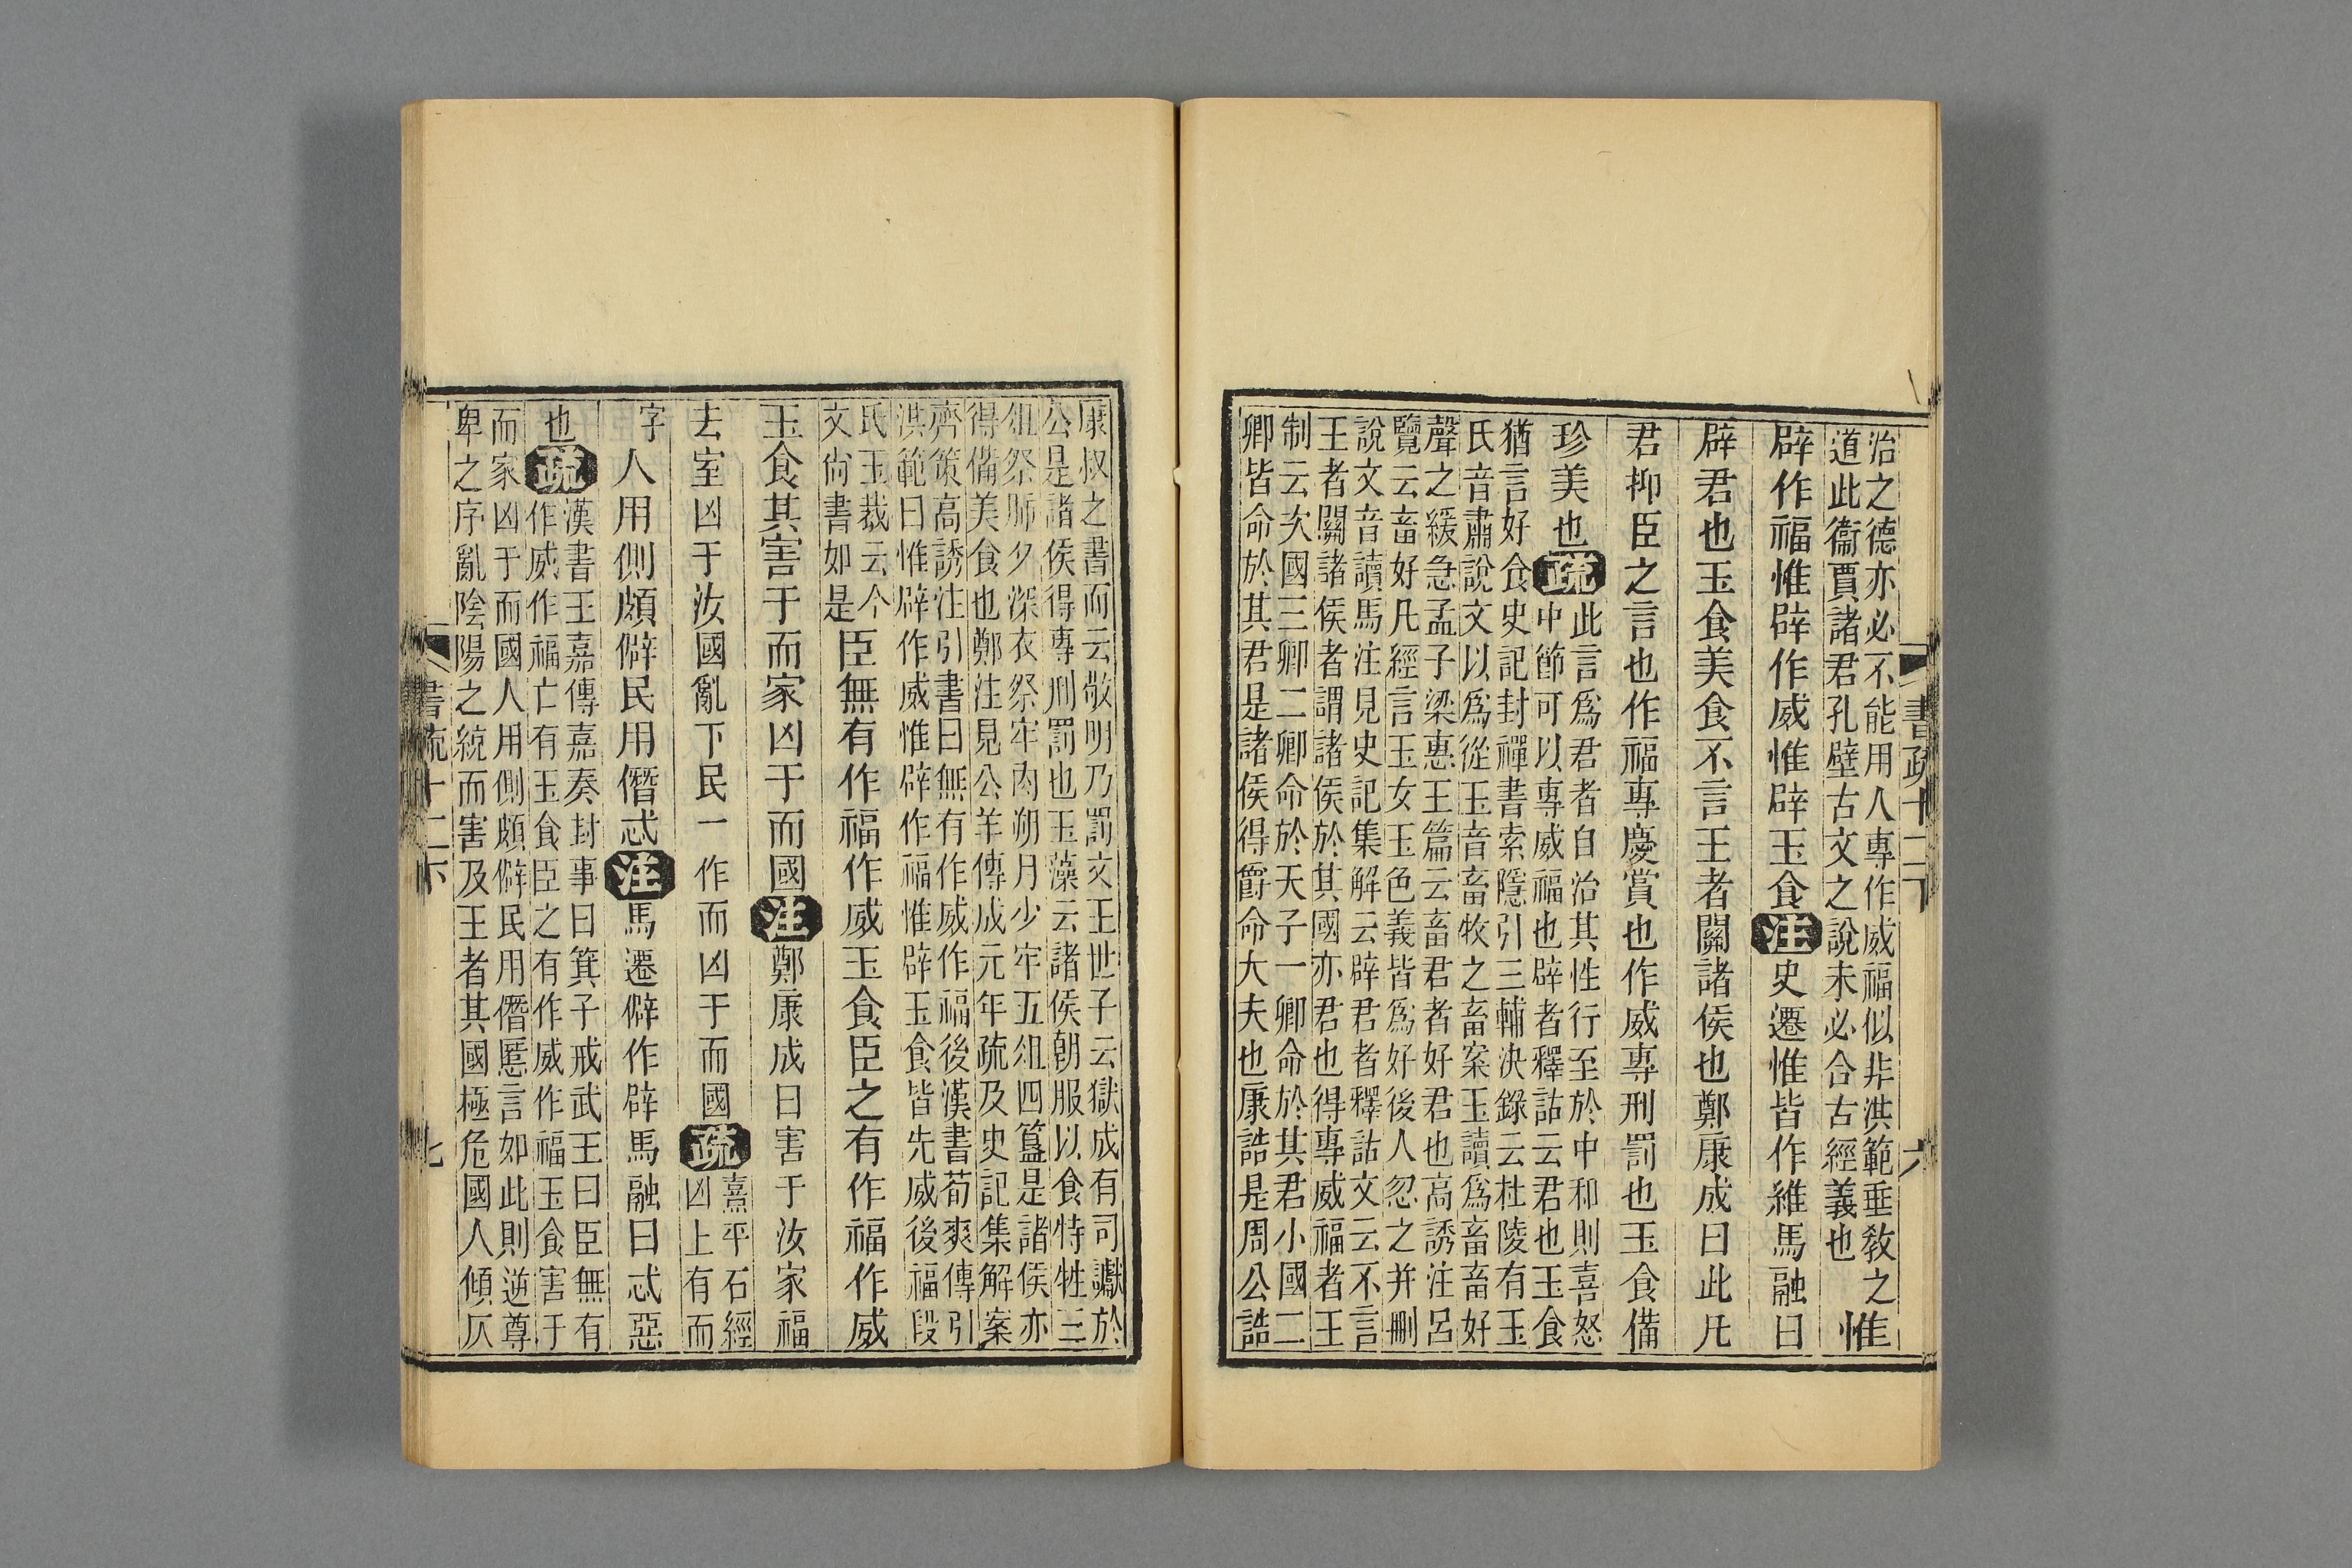 書疏十二下
六
治之德亦必不能用人專作威福似非洪範垂敎之
道此衞賈諸君孔壁古文之說未必合古經義也
惟
辟作福惟辟作威惟辟玉食注史遷惟皆作維馬融曰
辟君也玉食美食不言王者關諸侯也鄭康成曰此凡
君抑臣之言也作福專慶賞也作威專刑罰也玉食備
珍美也疏
此言爲君者自治其性行至於中和則喜怒
中節可以專威福也辟者釋詁云君也玉食
猶言好食史記封禪書索隱引三輔決錄云杜陵有玉
氏音肅說文以爲從玉音畜牧之畜案玉讀爲畜畜好
聲之緩急孟子梁惠王篇云畜君者好君也高誘注呂
覽云畜好凡經言玉女玉色義皆爲好後人忽之并刪
說文音讀馬注見史記集解云辟君者釋詁文云不言
王者關諸侯者謂諸侯於其國亦君也得專威福者王
制云次國三卿二卿命於天子一卿命於其君小國二
卿皆命於其君是諸侯得爵命大夫也康誥是周公誥
康叔之書而云敬明乃罰文王世子云獄成有司讞於
公是諸侯得專刑罰也玉藻云諸侯朝服以食特牲三
俎祭肺夕深衣祭牢肉朔月少牢五俎四簋是諸侯亦
得備美食也鄭注見公羊傳成元年疏及史記集解案
齊策高誘注引書曰無有作威作福後漢書荀爽傳引
洪範曰惟辟作威惟辟作福惟辟玉食皆先威後福段
氏玉裁云今
文尙書如是
臣無有作福作威玉食臣之有作福作威
玉食其害于而家凶于而國注鄭康成曰害于汝家福
去室凶于汝國亂下民一作而凶于而國疏
熹平石經
凶上有而
字
人用側頗僻民用僭忒注馬遷僻作辟馬融曰忒惡
也疏
漢書王嘉傳嘉奏封事曰箕子戒武王曰臣無有
作威作福亡有玉食臣之有作威作福玉食害于
而家凶于而國人用側頗僻民用僭慝言如此則逆尊
卑之序亂陰陽之統而害及王者其國極危國人傾仄
書疏十二下
七